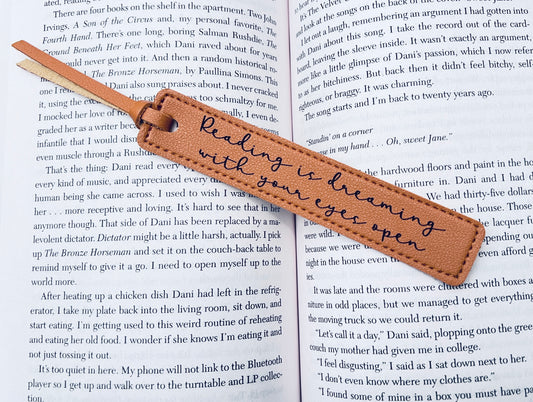 ated, reading
There are four books on the shelf in the apartment. Two John
Irvings, A Son of the Circus and, my personal favorite, The
Fourth Hand. There's one long, boring Salman Rushdie, The
Ground Beneath Her Feet, which Dani raved about for years
could never get into it. And then a random historical ro-
The Bronze Horseman, by Paullina Simons. This
one I Dani also sung praises about. I never cracked
it, using the too schmaltzy for me.
I mocked her love of
graded her as a writer becau
infantile that I would dism
even muscle through a Rushd
That's the thing: Dani read every
every kind of music, and appreciated every
human being she came across. I used to wish I was
her . . . more receptive and loving. It's hard to see that in her
anymore though. That side of Dani has been replaced by a ma-
levolent dictator. Dictator might be a little harsh, actually. I pick
up The Bronze Horseman and set it on the couch-back table to
remind myself to give it a go. I need to open myself up to the
world more.
After heating up a chicken dish Dani had left in the refrig-
erator, I take my plate back into the living room, sit down, and
start eating. I'm getting used to this weird routine of reheating
and eating her old food. I wonder if she knows I'm eating it and
not just tossing it out.
It's too quiet in here. My phone will not link to the Bluetooth
player so I get up and walk over to the turntable and LP collec-
tion.
Reading is dreaming
with your eyes open
It's The Velvet
and look at the songs on the back of the
I let out a laugh, remembering an argument I had gotten into
with Dani about this song. I take the record out of the card-
board, leaving the sleeve inside. It wasn't exactly an argument,
more like a little glimpse of Dani's passion, which I now refer
to as her bitchiness. But back then it didn't feel bitchy, self-
righteous, or braggy. It was charming.
The song starts and I'm back to twenty years ago.
"Standin' on a corner
in my hand . . . Oh, sweet Jane."
hardwood floors and paint in the ho
furniture in. Dani and I had d
We had thirty-five dollars
the house. Those
were wild. the lacquer fu
because we were spending ou
night in the house even afford g
ies.
It was late and the rooms were cluttered with boxes a
niture in odd places, but we managed to get everything
the moving truck so we could return it.
"Let's call it a day," Dani said, plopping onto the gree
couch my mother had given me in college.
"I feel disgusting," I said as I sat down next to her.
"I don't even know where my clothes are."
"I found some of mine in a box you must have pa